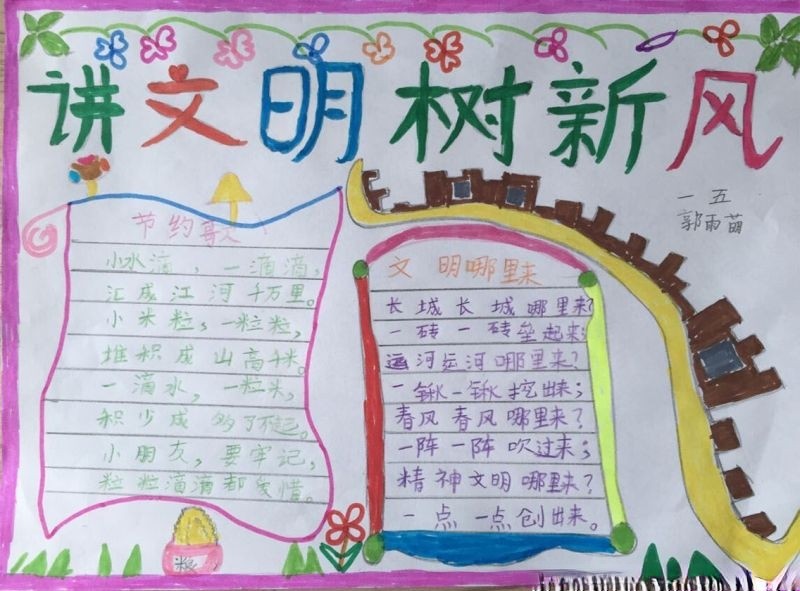 讲文明树新风
一五
郭雨萌
节约歌
小水滴，一滴滴，
汇成江河千万里。
小米粒，一粒粒，
堆积成山高千米。
一滴水，一粒米，
积少成多了不起。
小朋友，要牢记，
粒粒滴滴都爱惜。
文明哪里来
长城长城哪里来？
一砖一砖垒起来；
运河运河哪里来？
一锹一锹挖出来；
春风春风哪里来？
一阵一阵吹过来；
精神文明哪里来？
一点一点创出来。
粮